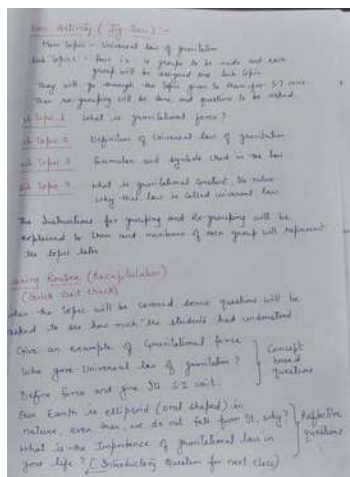 Main Activity (Jig Saw) :-
Main Topic - Universal law of gravitation
Sub Topics - Four i.e 4 groups to be made and each
group will be assigned one sub topic.
They will go through the topic given to them for 5-7 mins.
Then re-grouping will be done and questions to be asked.
Sub Topic 1 What is gravitational force?
Sub Topic 2 Definition of Universal law of gravitation.
Sub Topic 3 Formulae and symbols used in the law
Sub Topic 4 What is gravitational constant, its value
why this law is called universal law.
The Instructions for grouping and Re-grouping will be
explained to them and members of each group will represent
the topic later
Closing Routine (Recapitulation)
(Quick Exit check)
When the topic will be covered some questions will be
asked to see how much the students had understood.
Give an example of Gravitational force
Who gave Universal law of gravitation?
Define force and give its S.I unit.
Concept
based
questions
Our Earth is ellipsoid (oval shaped) in
nature, even then, we do not fall from it, why?
What is the Importance of gravitational law in
your life? (Introductory Question for next class)
Reflective
questions